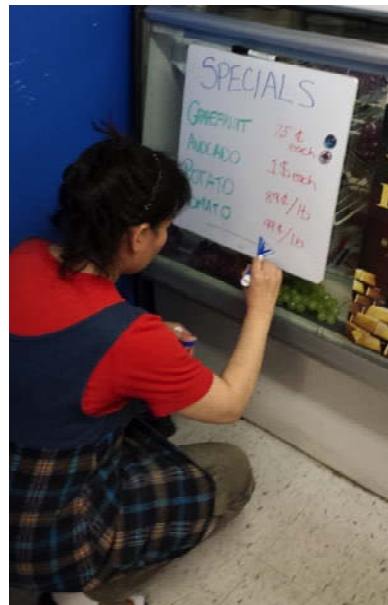 SPECIALS
GRAPEFRUIT 75¢ each
AVOCADO 1$ each
POTATO 89¢/lb
TOMATO 99¢/lb